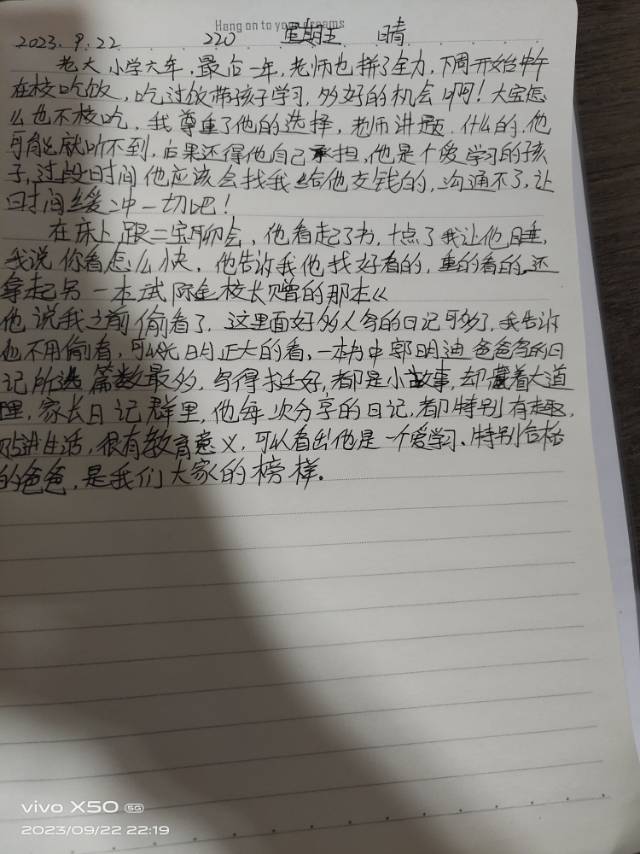 Hang on to your dreams
2023.9.22 220 星期五 晴
老大小学六年,最后一年,老师也拼了全力,下周开始中午
在校吃饭,吃过饭带孩子学习,多好的机会啊!大宝怎
么也不校吃,我尊重了他的选择,老师讲题.什么的,他
可能就听不到,后果还得他自己承担,他是个爱学习的孩
子,过段时间他应该会找我给他交钱的,沟通不了,让
时间缓冲一切吧!
在床上跟二宝聊会,他看起了书,十点了我让他睡,
我说你看怎么快,他告诉我他找好看的,重的看的,还
拿起另一本试 校长赠的那本《
他说我之前偷看了,这里面好多人写的日记可多了,我告诉
他不用偷看,可以光明正大的看,一本书中郭明迪爸爸写的日
记所选篇数最多,写得挺好,都是小故事,却藏着大道
理,家长日记群里,他每次分享的日记,都特别有趣,
贴进生活,很有教育意义,可以看出他是一个爱学习.特别合格
的爸爸,是我们大家的榜样.
vivo X50 5G
2023/09/22 22:19